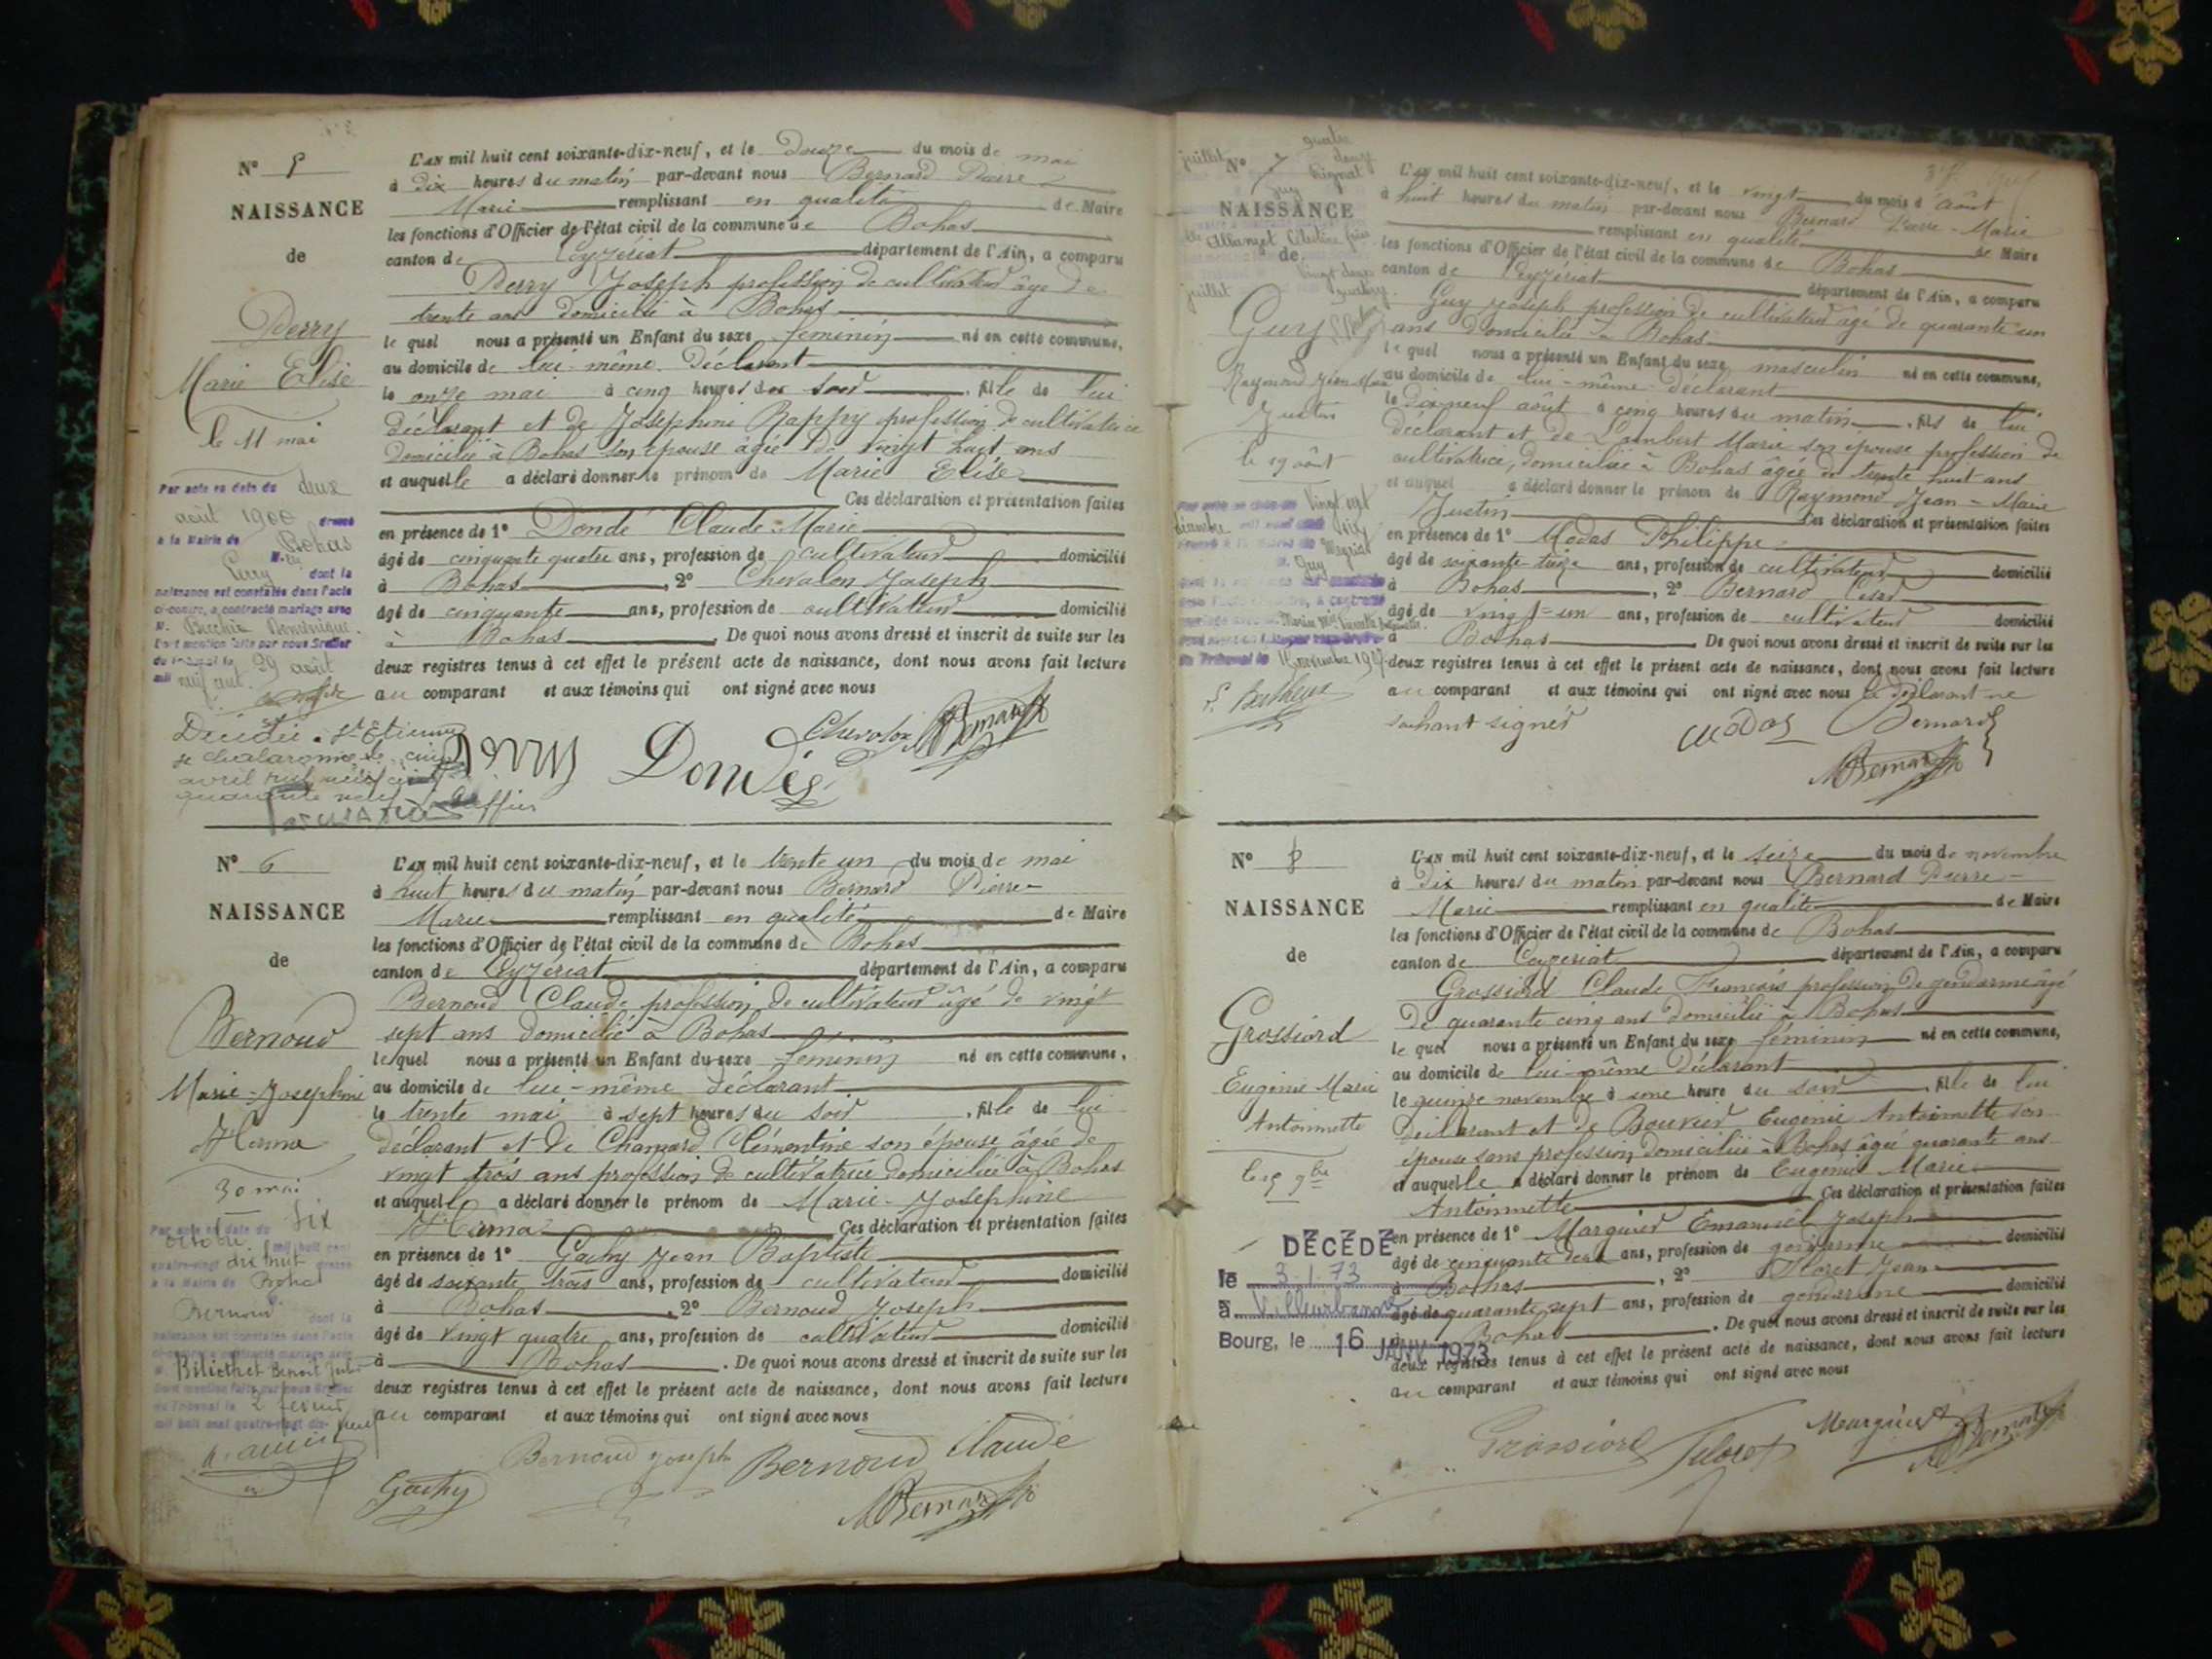 N° 5
NAISSANCE
de
Perry
Marie Elise
le 11 mai
Par acte en date du deux
août 1900 dressé
à la Mairie de Bohas
Perry dont la
naissance est constatée dans l'acte
ci-contre, a contracté mariage avec
M. Dominique
Dont mention faite par nous Greffier
du Tribunal le 29 août
mil neuf cent
Décédée à St Etienne
s/ Chalaronne le cinq
avril mil neuf cent
quarante neuf
L'AN mil huit cent soixante-dix-neuf, et le Douze du mois de mai
à dix heures du matin par-devant nous Bernard Pierre
Marie remplissant en qualité de Maire
les fonctions d'Officier de l'état civil de la commune de Bohas
canton de Ceyzériat département de l'Ain, a comparu
Perry Joseph profession de cultivateur âgé de
trente ans domicilié à Bohas
le quel nous a présenté un Enfant du sexe féminin né en cette commune,
au domicile de lui-même Déclarant
le onze mai à cinq heures du soir, fille de lui
déclarant et de Joséphine Rappy profession de cultivatrice
domiciliée à Bohas son épouse âgée de vingt huit ans
et auquelle a déclaré donner le prénom de Marie Elise
Ces déclaration et présentation faites
en présence de 1° Dondé Claude-Marie
âgé de cinquante quatre ans, profession de cultivateur domicilié
à Bohas, 2° Chevalon Joseph
âgé de cinquante ans, profession de cultivateur domicilié
à Bohas. De quoi nous avons dressé et inscrit de suite sur les
deux registres tenus à cet effet le présent acte de naissance, dont nous avons fait lecture
au comparant et aux témoins qui ont signé avec nous
Perry Dondé Chevalon Bernard
N° 6
NAISSANCE
de
Bernoud
Marie-Joséphine
Herma
30 mai
Par acte en date du six
octobre mil huit cent
quatre-vingt dix huit dressé
à la Mairie de Bohas
Bernoud dont la
naissance est constatée dans l'acte
Benoît
Dont mention faite par nous Greffier
du Tribunal le 2
mil huit cent quatre-vingt dix neuf
L'AN mil huit cent soixante-dix-neuf, et le trente un du mois de mai
à huit heures du matin par-devant nous Bernard Pierre
Marie remplissant en qualité de Maire
les fonctions d'Officier de l'état civil de la commune de Bohas
canton de Ceyzériat département de l'Ain, a comparu
Bernoud Claude profession de cultivateur âgé de vingt
sept ans domicilié à Bohas
lequel nous a présenté un Enfant du sexe féminin né en cette commune,
au domicile de lui-même déclarant
le trente mai à sept heures du soir, fille de lui
déclarant et de Chanard Clémentine son épouse âgée de
vingt trois ans profession de cultivatrice domiciliée à Bohas
et auquelle a déclaré donner le prénom de Marie-Joséphine
Herma Ces déclaration et présentation faites
en présence de 1° Gachy Jean Baptiste
âgé de soixante trois ans, profession de cultivateur domicilié
à Bohas, 2° Bernoud Joseph
âgé de vingt quatre ans, profession de cultivateur domicilié
à Bohas. De quoi nous avons dressé et inscrit de suite sur les
deux registres tenus à cet effet le présent acte de naissance, dont nous avons fait lecture
au comparant et aux témoins qui ont signé avec nous
Gachy Bernoud joseph Bernoud Claude Bernard
N° 7
NAISSANCE
de
Guy
Raymond Jean-Marie
Justin
le 19 août
L'AN mil huit cent soixante-dix-neuf, et le vingt du mois d'août
à huit heures du matin par-devant nous Bernard Pierre-Marie
remplissant en qualité de Maire
les fonctions d'Officier de l'état civil de la commune de Bohas
canton de Ceyzériat département de l'Ain, a comparu
Guy Joseph profession de cultivateur âgé de quarante un
ans domicilié à Bohas
le quel nous a présenté un Enfant du sexe masculin né en cette commune,
au domicile de lui-même déclarant
le dix neuf août à cinq heures du matin, fils de lui
déclarant et de Lambert Marie son épouse profession de
cultivatrice, domiciliée à Bohas âgée de trente huit ans
et auquel a déclaré donner le prénom de Raymond Jean-Marie
Justin Ces déclaration et présentation faites
en présence de 1° Modas Philippe
âgé de soixante treize ans, profession de cultivateur domicilié
à Bohas, 2° Bernard César
âgé de vingt-un ans, profession de cultivateur domicilié
à Bohas. De quoi nous avons dressé et inscrit de suite sur les
deux registres tenus à cet effet le présent acte de naissance, dont nous avons fait lecture
au comparant et aux témoins qui ont signé avec nous le déclarant ne
sachant signer
Modas Bernard
Bernard
N° 8
NAISSANCE
de
Grossiord
Eugénie Marie
Antoinette
le 15 9bre
DÉCÉDÉ
le 3.1.73
à Villeurbanne
Bourg, le 16 JANV 1973
L'AN mil huit cent soixante-dix-neuf, et le seize du mois de novembre
à dix heures du matin par-devant nous Bernard Pierre-
Marie remplissant en qualité de Maire
les fonctions d'Officier de l'état civil de la commune de Bohas
canton de Ceyzeriat département de l'Ain, a comparu
Grossiord Claude François profession de gendarme âgé
de quarante cinq ans domicilié à Bohas
le quel nous a présenté un Enfant du sexe féminin né en cette commune,
au domicile de lui-même déclarant
le quinze novembre à une heure du soir, fille de lui
déclarant et de Bouvier Eugénie Antoinette son
épouse sans profession domiciliée à Bohas âgée quarante ans
et auquelle a déclaré donner le prénom de Eugénie Marie
Antoinette Ces déclaration et présentation faites
en présence de 1° Marguier Emanuel Joseph
âgé de cinquante deux ans, profession de gendarme domicilié
à Bohas, 2° Floret Jean
âgé de quarante sept ans, profession de gendarme domicilié
à Bohas. De quoi nous avons dressé et inscrit de suite sur les
deux registres tenus à cet effet le présent acte de naissance, dont nous avons fait lecture
au comparant et aux témoins qui ont signé avec nous
Grossiord Floret Marguier Bernard